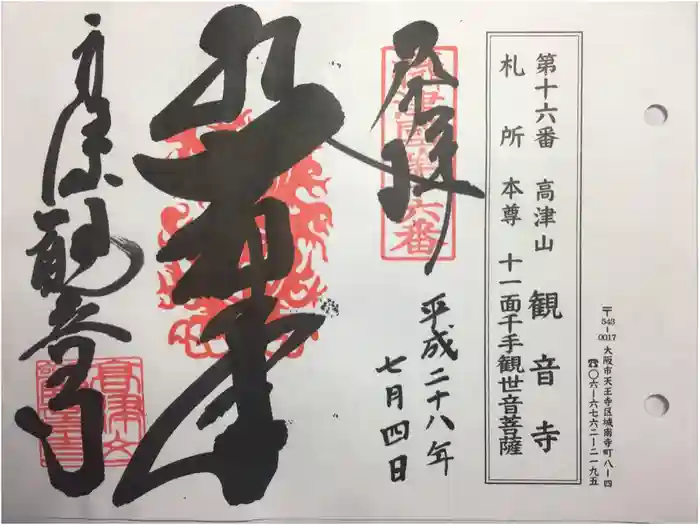 〒543-0017 大阪市天王寺区城南寺町八-四
☎〇六-六七六二-二一九五
第十六番 高津山 観音寺
札所 本尊 十一面千手観世音菩薩
奉拝
平成二十八年
七月四日
高津観音寺